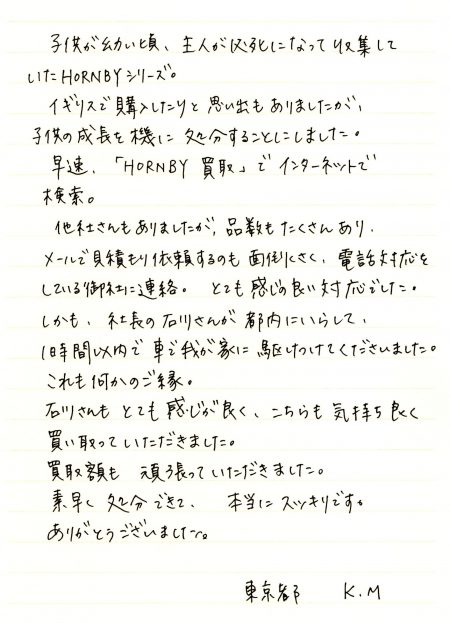 子供が幼い頃、主人が必死になって収集して
いたHORNBYシリーズ。
イギリスで購入したりと思い出もありましたが、
子供の成長を機に処分することにしました。
早速、「HORNBY 買取」でインターネットで
検索。
他社さんもありましたが、品数もたくさんあり、
メールで見積もり依頼するのも面倒くさく、電話対応を
している御社に連絡。 とても感じの良い対応でした。
しかも、社長の石川さんが都内にいらして、
1時間以内で車で我が家に駆けつけてくださいました。
これも何かのご縁。
石川さんもとても感じが良く、こちらも気持ち良く
買い取っていただきました。
買取額も 頑張っていただきました。
素早く処分できて、 本当にスッキリです。
ありがとうございました。
東京都 K.M